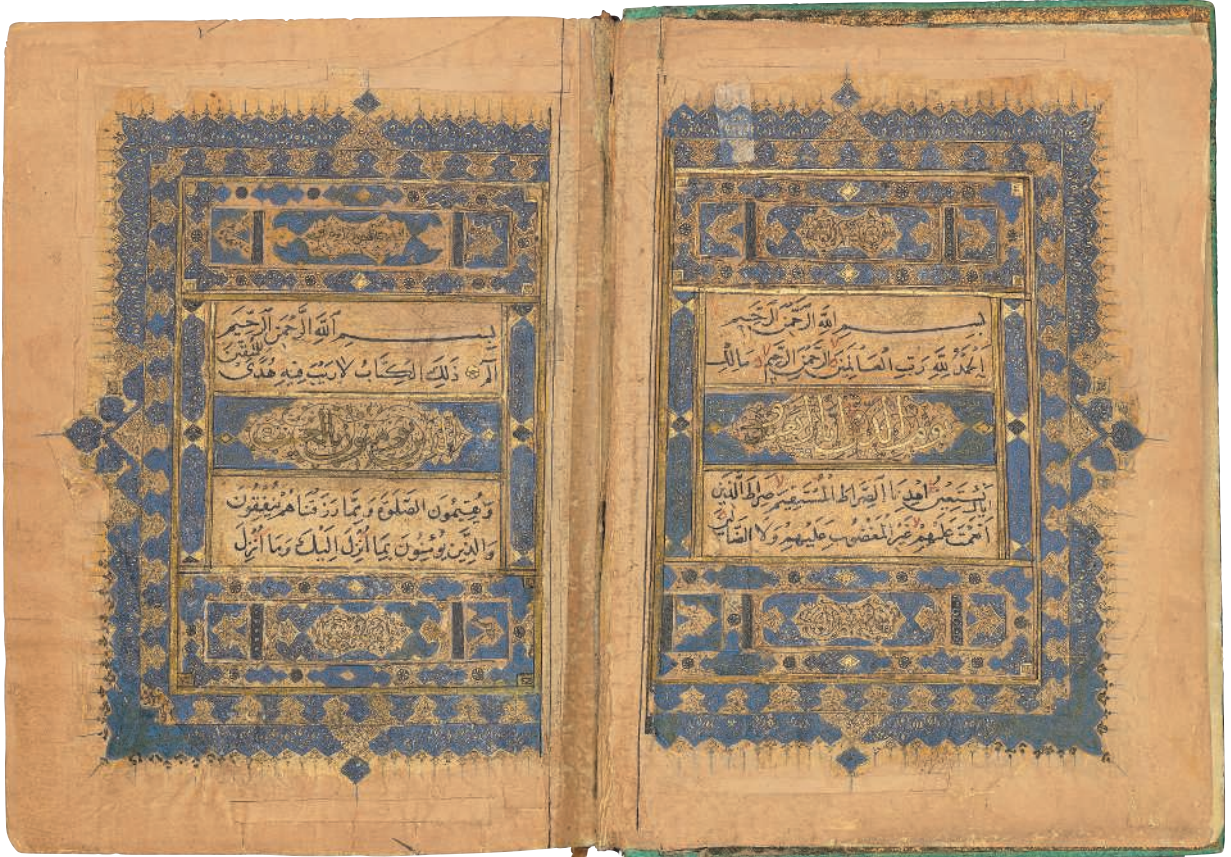 بِسْمِ اللهِ الرَّحْمٰنِ الرَّحِيمِ
اَلْحَمْدُ لِلّٰهِ رَبِّ الْعَالَمِينَ الرَّحْمٰنِ الرَّحِيمِ مَالِكِ
يوم الدين اياك نعبد
واياك نَسْتَعِينُ اهْدِنَا الصِّرَاطَ الْمُسْتَقِيمَ صِرَاطَ الَّذِينَ
اَنْعَمْتَ عَلَيْهِمْ غَيْرِ الْمَغْضُوبِ عَلَيْهِمْ وَلَا الضَّالِّينَ
بِسْمِ اللهِ الرَّحْمٰنِ الرَّحِيمِ
الٓمٓ ذٰلِكَ الْكِتَابُ لَا رَيْبَ فِيهِ هُدًى لِلْمُتَّقِينَ
الذين يؤمنون بالغيب
وَيُقِيمُونَ الصَّلٰوةَ وَمِمَّا رَزَقْنَاهُمْ يُنْفِقُونَ
وَالَّذِينَ يُؤْمِنُونَ بِمَا اُنْزِلَ اِلَيْكَ وَمَا اُنْزِلَ